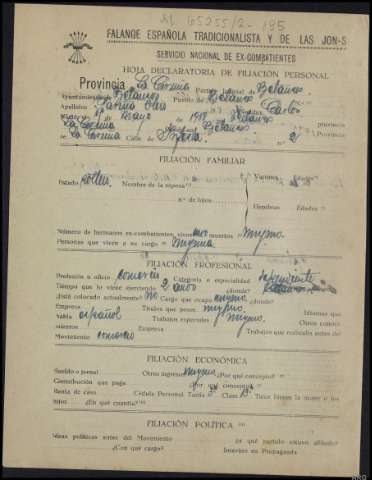 65255/2-195
FALANGE ESPAÑOLA TRADICIONALISTA Y DE LAS JON-S
SERVICIO NACIONAL DE EX-COMBATIENTES
HOJA DECLARATORIA DE FILIACIÓN PERSONAL
Provincia La Coruña Partido Judicial de Betanzos
Ayuntamiento de Betanzos Pueblo de Betanzos
Apellidos Carlos
Mayo de 1918 Betanzos provincia
La Coruña Betanzos provincia
de La Coruña Calle de n.º 2
FILIACIÓN FAMILIAR
Estado soltero Nombre de la esposa Varones Edades
n.º de hijos
Hembras Edades
Número de hermanos ex-combatientes vivos uno muertos ninguno
Personas que viven a su cargo ninguna
FILIACIÓN PROFESIONAL
Profesión u oficio comercio Categoría o especialidad dependiente
Tiempo que lo viene ejerciendo 2 años ¿dónde? Betanzos
¿Está colocado actualmente? No Cargo que ocupa ninguno ¿dónde?
Empresa Títulos que posee ninguno Idiomas que
habla español Trabajos especiales ninguno Otros conoci-
mientos Empresa Trabajos que realizaba antes del
Movimiento comercio
FILIACIÓN ECONÓMICA
Sueldo o jornal Otros ingresos ninguno ¿Por qué concepto?
Contribución que paga ¿Por qué concepto?
Renta de casa Cédula Personal Tarifa 3ª Clase 13ª Tiene bienes la mujer o los
hijos ¿En qué cuantía?
FILIACIÓN POLÍTICA
Ideas políticas antes del Movimiento ¿a qué partido estuvo afiliado?
¿Con qué cargo? Intervino en Propaganda